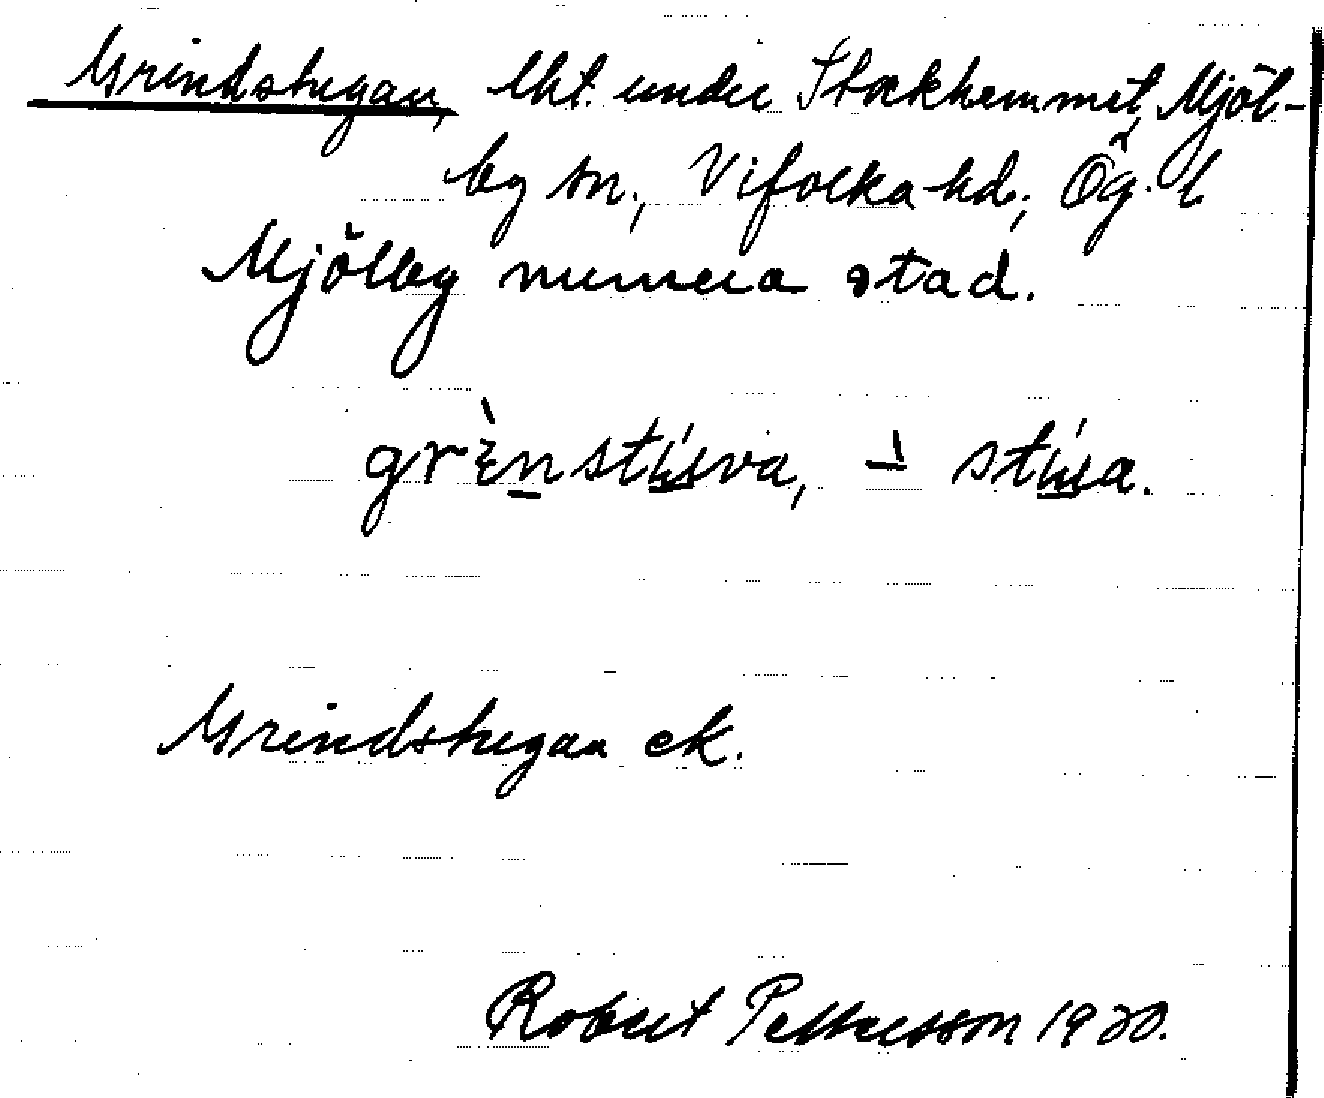 Grindstugan, lht. under Stockhemmet, Mjöl-
by sn., Vifolka hd., Ög. l
Mjölby numera stad.
grὲnstúva, ⊥̀ stúa.
Grindstugan ek.
Robert Pettersson 1920.